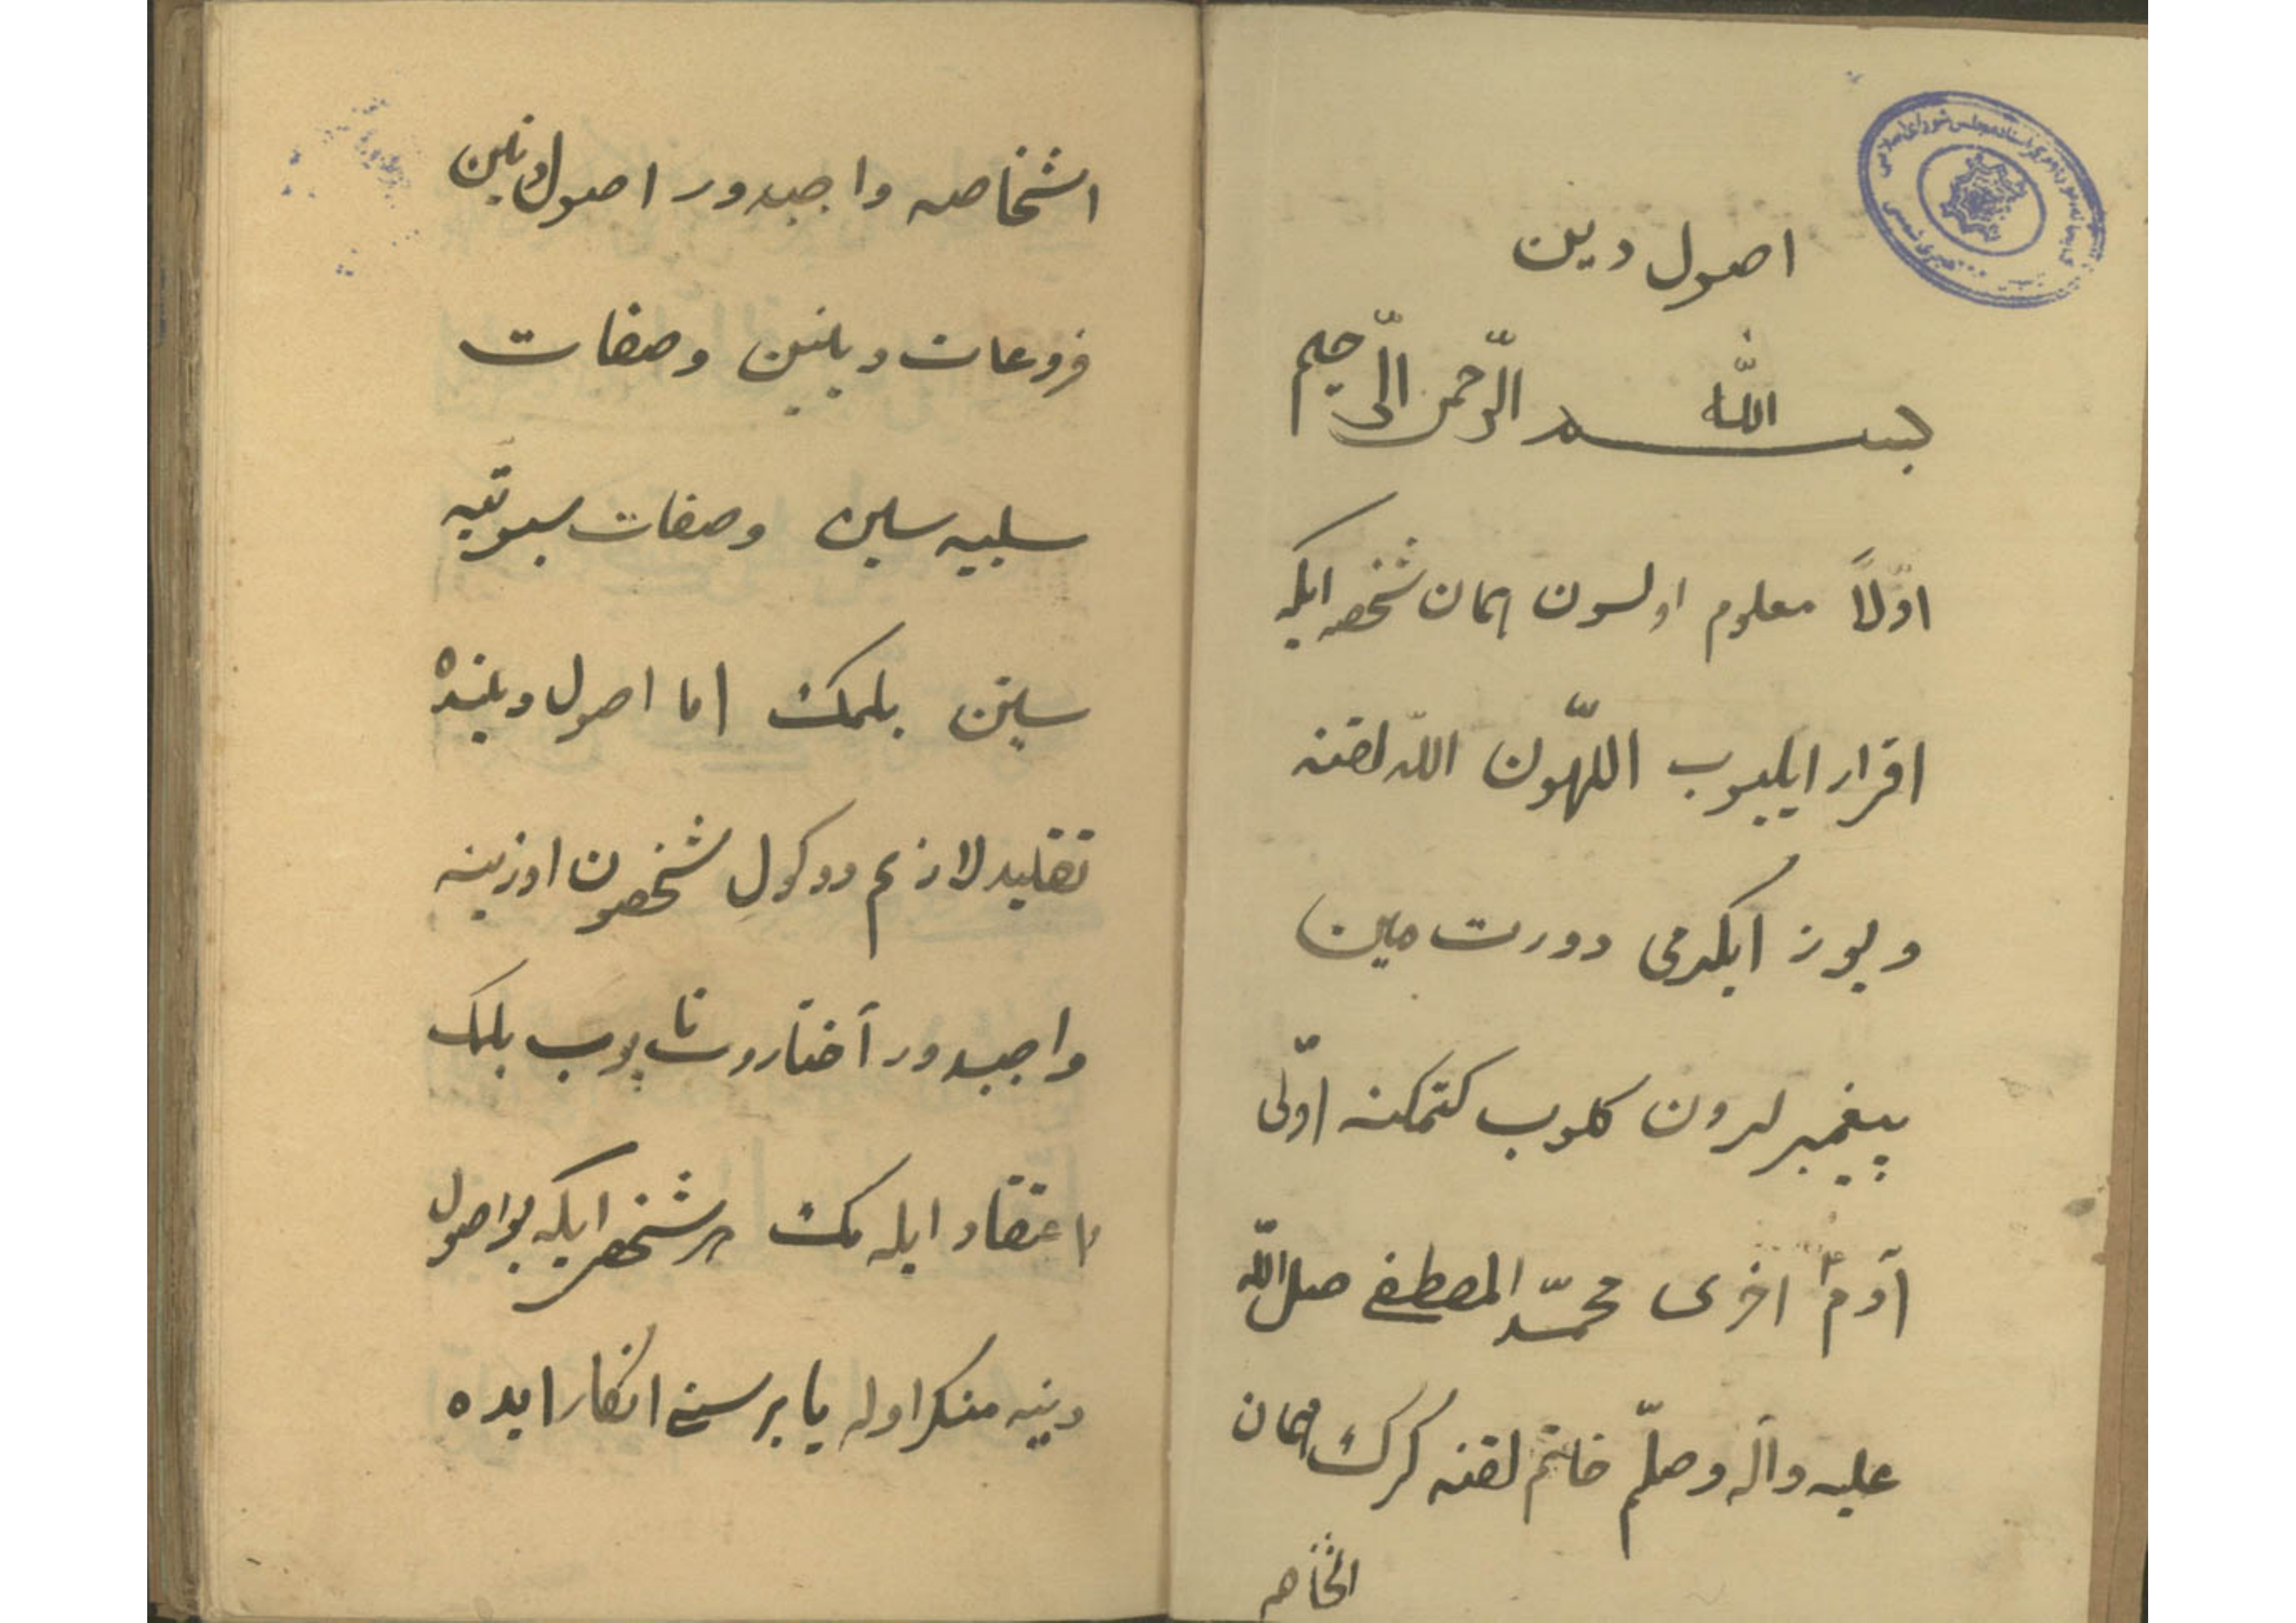 اصول دین
بسم الله الرّحمن الرّحیم
اوّلاً معلوم اولسون ایمان شخصه ایکه
اقرار ایلیوب اللّهون الله لقنه
و یوز ایکرمی دورت مین
پیغمبرلرون کلوب کتمکنه اوّلی
آدمؑ اخری محمّد المصطفی صلی الله
علیه وآله وصلّم خاتم لقنه کرک ایمان
اشخاصه
اشخاصه واجبدور اصول دینین
فروعات دینین وصفات
سلبیه سلین وصفات سبوتیه
سین بلمک اما اصول دینده
تقلید لازم دوکول شخصون اوزینه
واجبدور آختاروب تاپوب بلمک
اعتقاد ایله مک هر شخص ایکه بو اصول
دینه منکر اوله یا برسنی انکار ایده